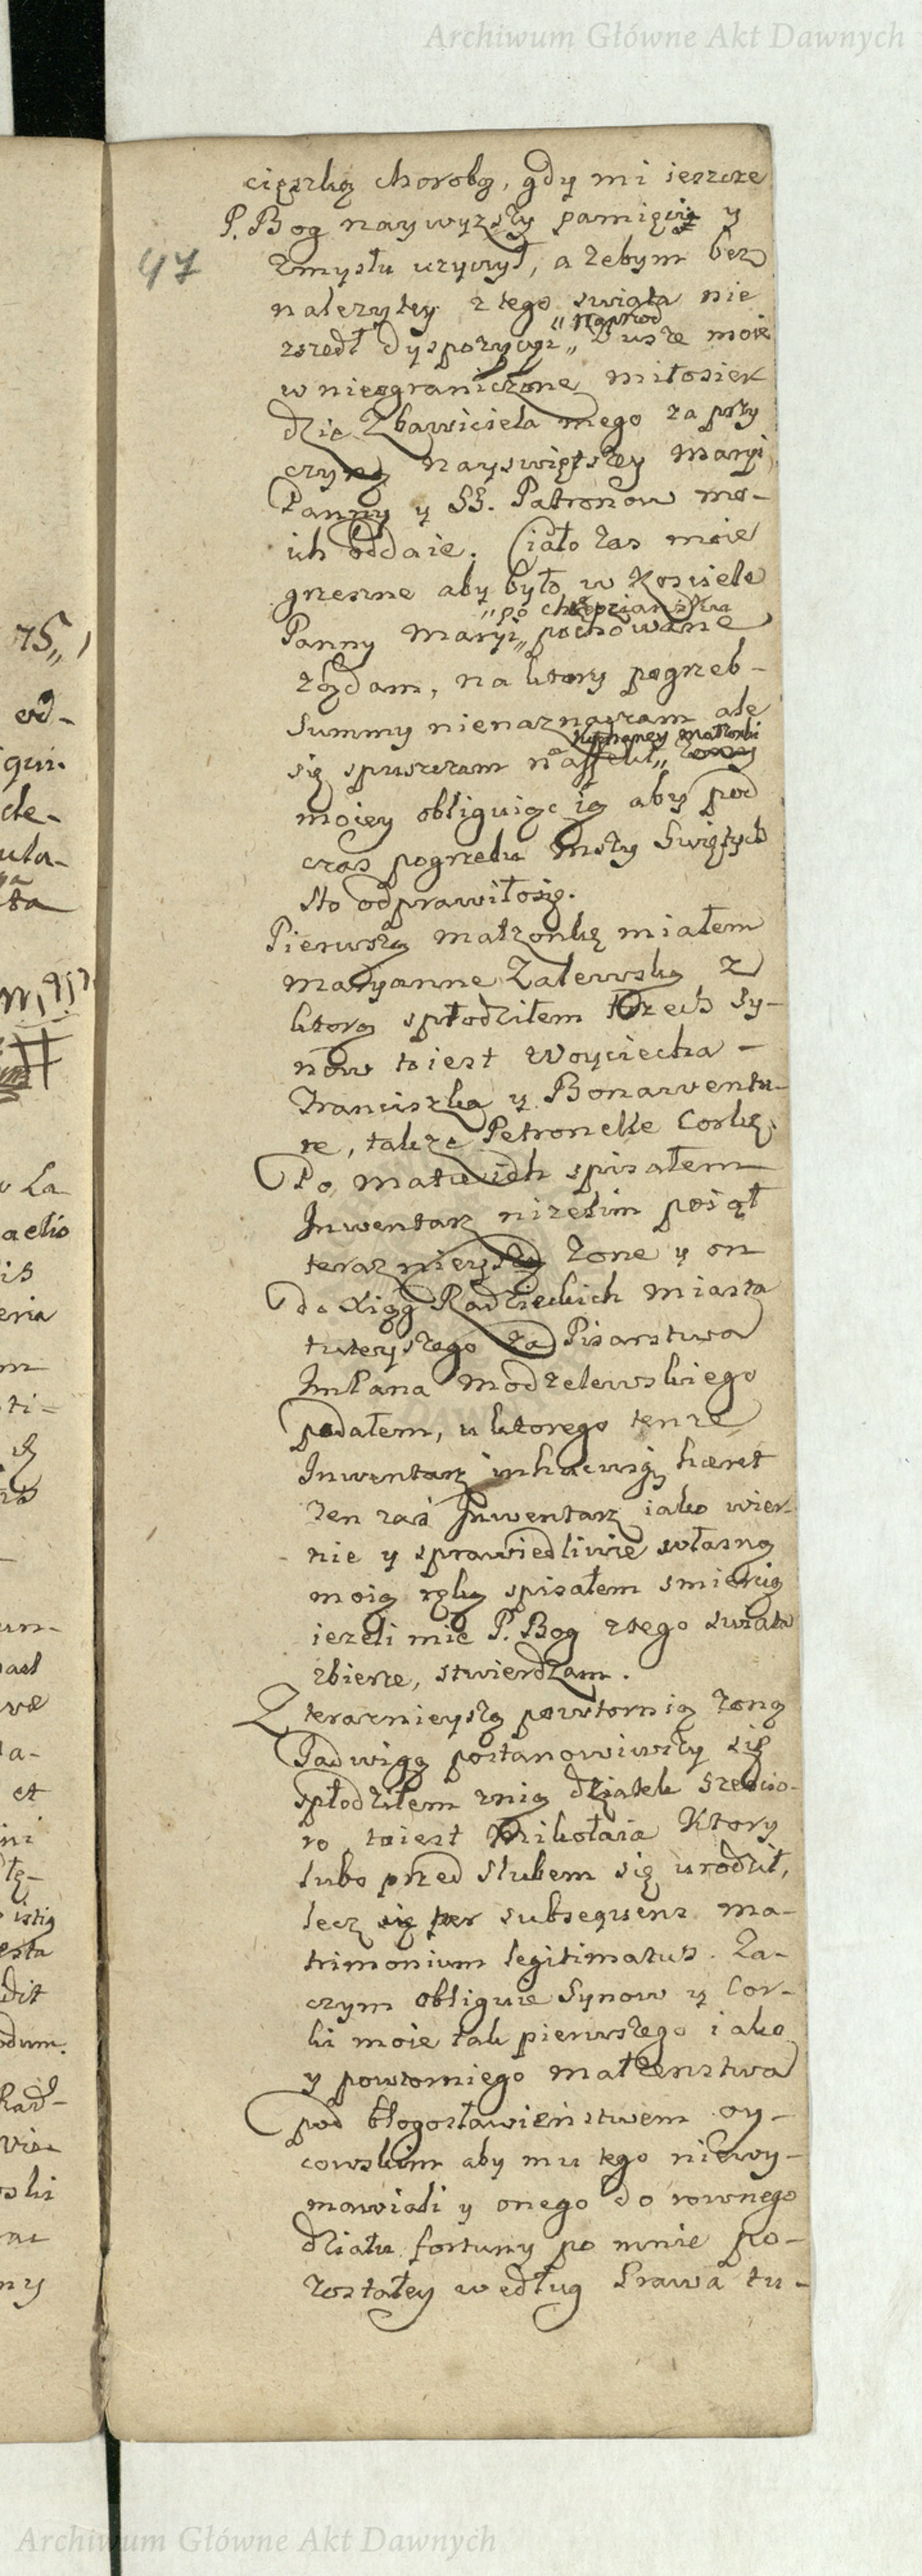 Archiwum Główne Akt Dawnych
cięszką chorobą, gdy mi ieszcze
P. Bog naywyzszy pamięci y
47
zmysłu uzyczył, a zebym bez
nalezytey z tego swiata nie
zszedł dyspozycyi „ Dusze moie
„ naprzod
w nieograniczone miłosier
dzie Zbawiciela mego za przy
czyną nayswiętszey Maryi
Panny y SS. Patronow mo-
ich oddaie. Ciało zas moie
grzeszne aby było w Kosciele
„ po chrzesciansku
Panny Maryi „ pochowane
ządam, na ktory pogrzeb
summy nienaznaczam ale
kochaney małzonki
się spuszczam na affekt „ zony
moiey obliguiąc ią aby pod
czas pogrzebu Mszy Swiętych
sto odprawiłosię.
Pierwszą małzonkę miałem
Maryanne Zalewską z
ktorą spłodziłem trzech Sy-
now to iest Woyciecha -
Franciszka y Bonawentu-
re, takze Petronelle Corkę.
Po matce ich spisałem
Inwentarz nizelim poiął
teraznieyszą zone y on
do xiąg Radzieckich miasta
tuteyszego za Pisarstwa
ImPana Modzelewskiego
podałem, u ktorego tenze
Inwentarz inhucusią hæret
ten zaś Inwentarz iako wier-
nie y sprawiedliwie własną
moią ręką spisałem smiercią
iezeli mie P. Bog z tego swiata
zbierze, stwierdzam.
Z teraznieyszą powtornią zoną
Jadwigą postanowiwszy się
spłodziłem z nią dziatek szescio-
ro to iest Mikołaia Ktory
lubo przed slubem się urodził,
lecz się per subsequens ma-
trimonium legitimatus. Za-
czym obliguie Synow y Cor-
ki moie tak pierwszego iako
y powtornego małzenstwa
pod błogosławieństwem oy-
cowskim aby mu tego niewy-
mawiali y onego do rownego
działu fortuny po mnie po-
zostałey według Prawa tu-
Archiwum Główne Akt Dawnych